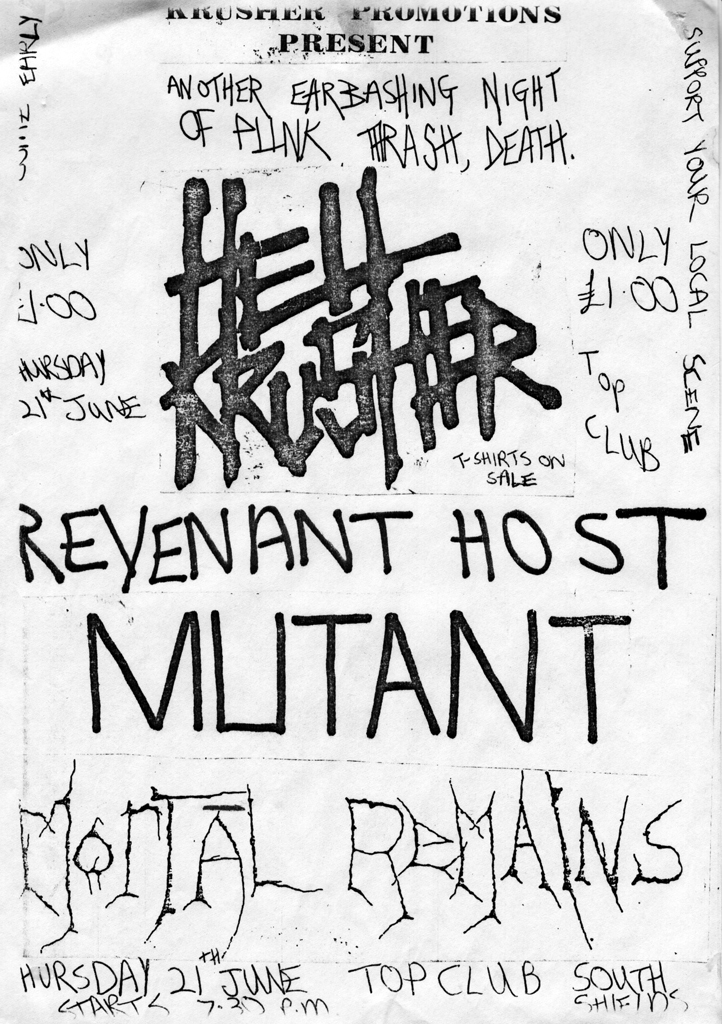 KRUSHER PROMOTIONS
PRESENT
ANOTHER EARBASHING NIGHT
OF PUNK THRASH, DEATH.
EARLY
SUPPORT YOUR LOCAL SCENE
HELL
KRUSHER
ONLY
£1.00
HURSDAY
21st JUNE
ONLY
£1.00
TOP
CLUB
T-SHIRTS ON
SALE
REVENANT HOST
MUTANT
MORTAL REMAINS
HURSDAY 21TH JUNE TOP CLUB SOUTH
STARTS 7.30 P.M SHIELDS